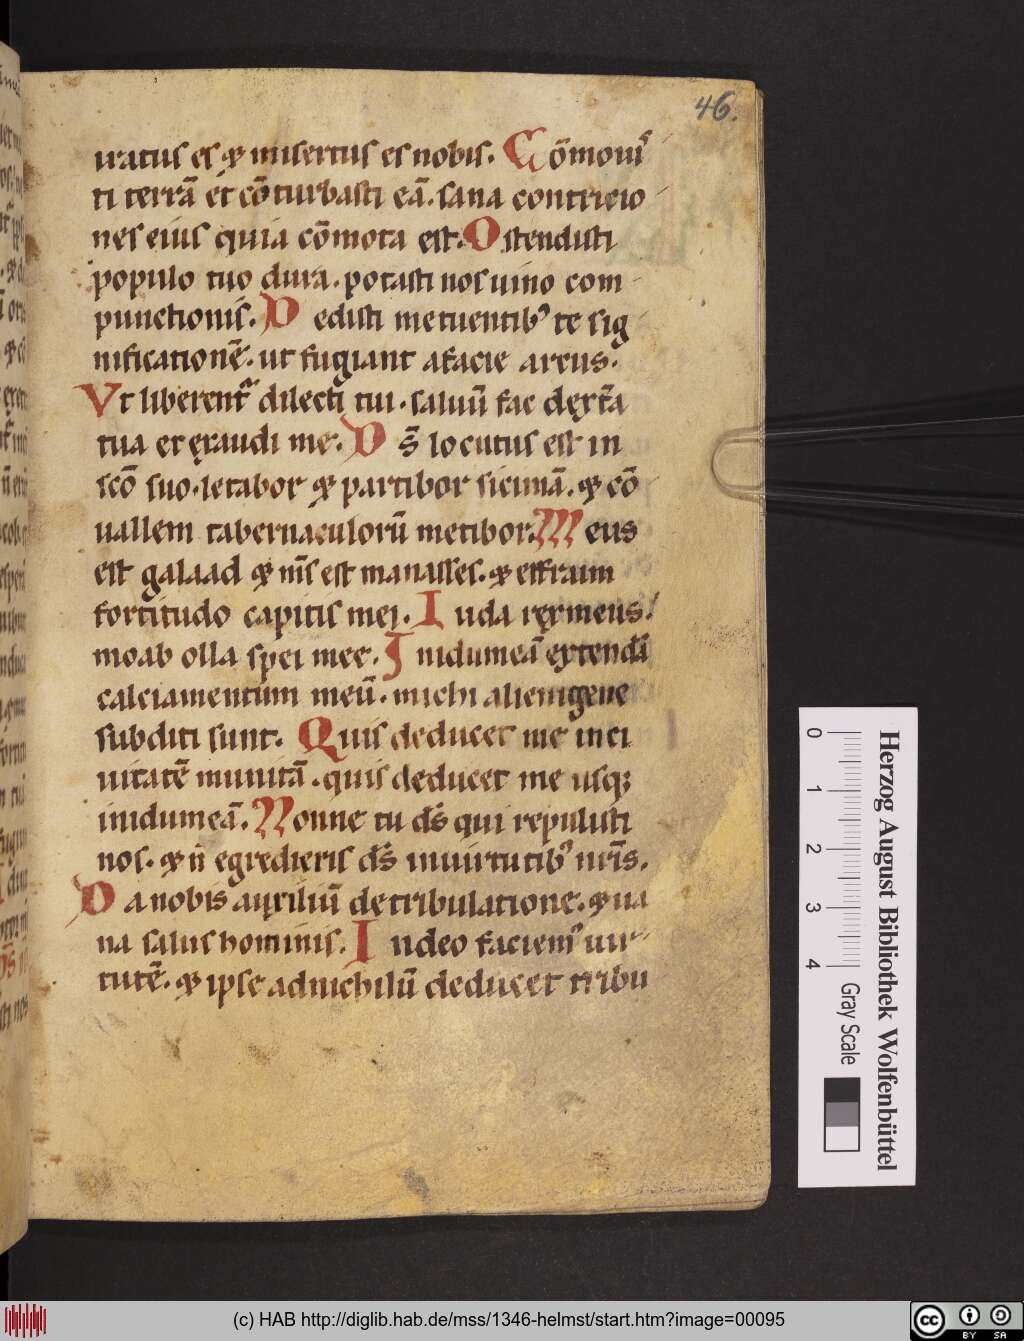 46.
uratus es ⁊ misertus es nobis. Cōmouis
ti terrā et cōturbasti eā. sana contricio
nes eius quia cōmota est. Ostendisti
populo tuo dura. potasti nos uino com
punctionis. Dedisti metuentib᷒ te sig
nificationē. ut fugiant afacie arcus.
Vt liberent᷑ dilecti tui. saluū fac dext᷑a
tua et exaudi me. Ds̄ locutus est in
scō suo. letabor ⁊ partibor sicimā. ⁊ cō
uallem tabernaculorū metibor. Meus
est galaad ⁊ m̄s est manasses. ⁊ effraim
fortitudo capitis mei. Iuda rex meus.
moab olla spei mee. Inidumeā extendā
calciamentum meū. michi alienigene
subditi sunt. Quis deducet me inci
uitatē munitā. quis deducet me usq;
inidumeā. Nonne tu ds̄ qui repulisti
nos. ⁊ n̄ egredieris ds̄ inuirtutib᷒ nr̄is.
Da nobis auxiliū detribulatione. ⁊ ua
na salus hominis. Indeo faciem᷒ uir
tutē. ⁊ ipse adnichilū deducet tribu
0 1 2 3 4
Gray Scale
Herzog August Bibliothek Wolfenbüttel
(c) HAB http://diglib.hab.de/mss/1346-helmst/start.htm?image=00095
cc BY SA